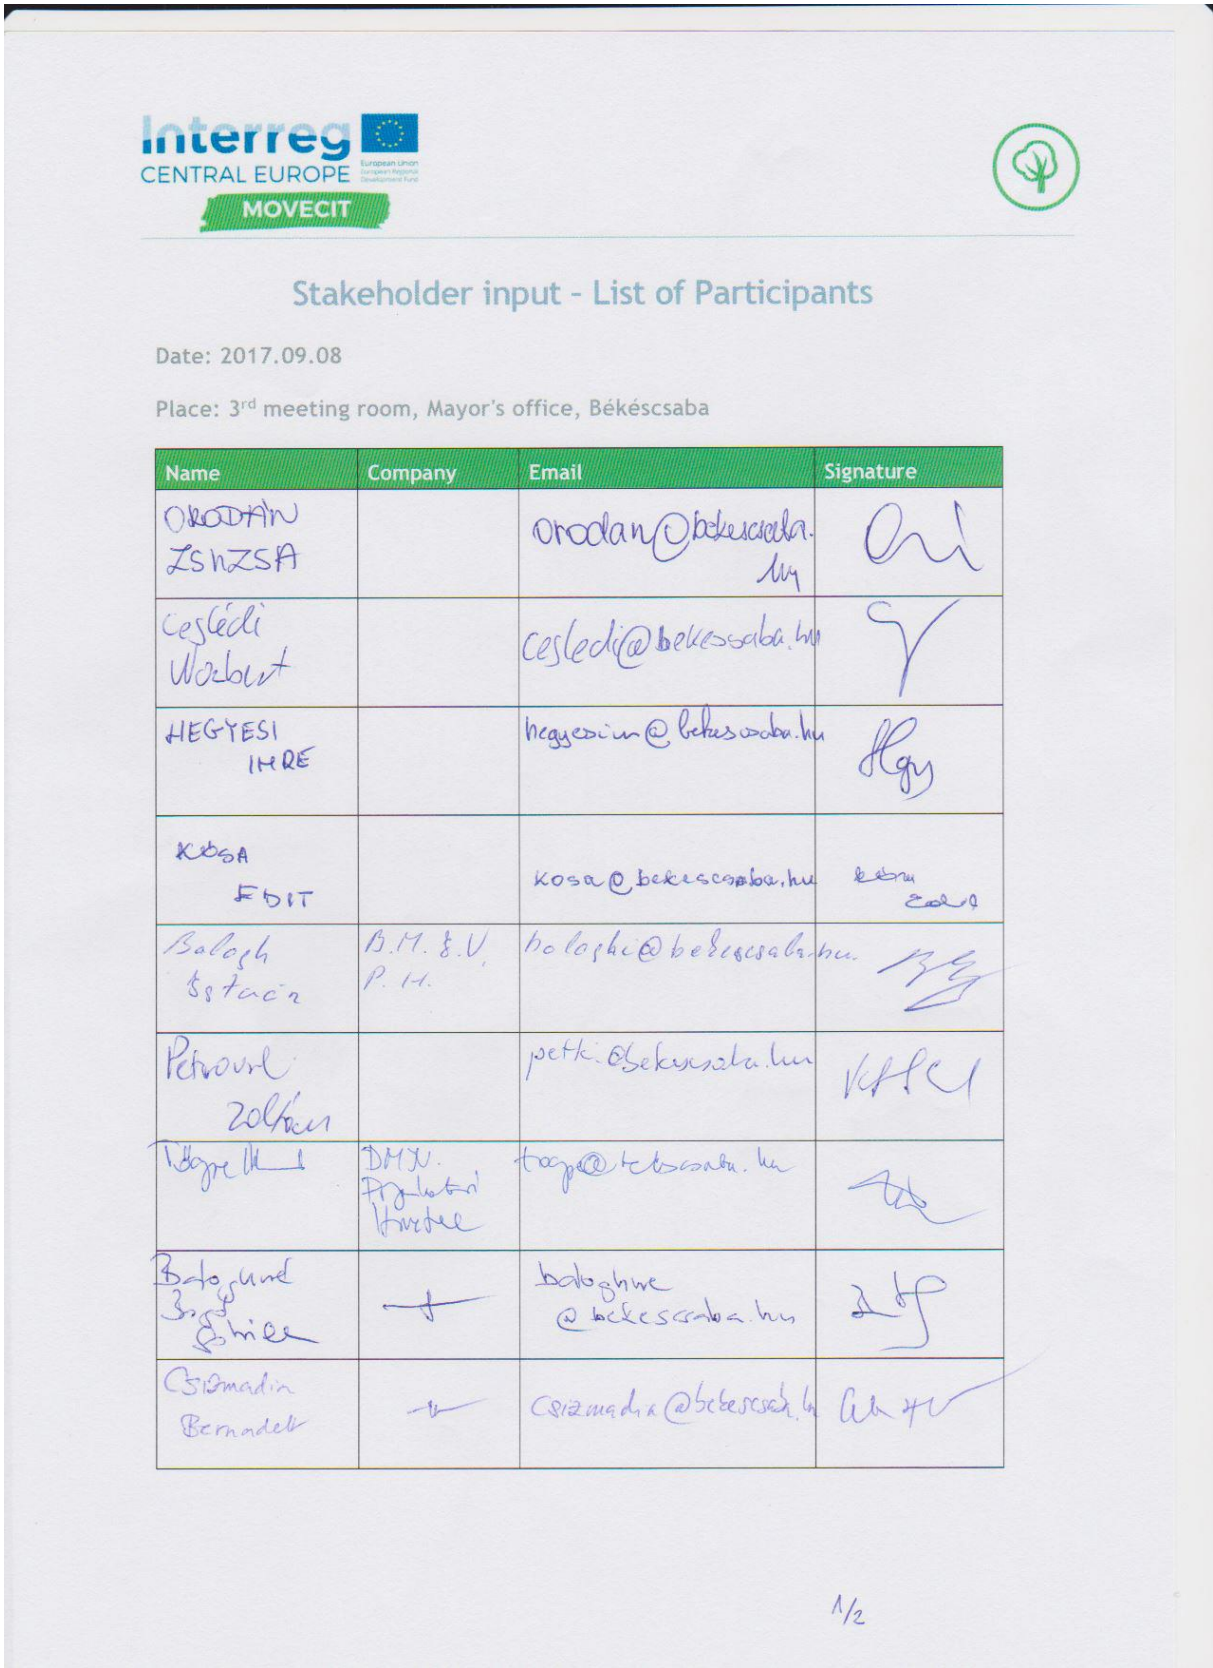 Interreg
CENTRAL EUROPE
European Union
European Regional
Development Fund
MOVECIT
Stakeholder input - List of Participants
Date: 2017.09.08
Place: 3rd meeting room, Mayor's office, Békéscsaba
Name Company Email Signature
ORODÁN
ZSUZSA
orodan@bekescsaba.
hu
Ceglédi
Norbert
cegledi@bekescsaba.hu
HEGYESI
IMRE
hegyesiim@bekescsaba.hu
KÓSA
EDIT
kosa@bekescsaba.hu
Kósa
Edit
Balogh
István
B.M.J.V.
P.H.
baloghi@bekescsaba.hu.
Zoltán
@bekescsaba.hu
@bekescsaba.hu
Baloghné
baloghne
@bekescsaba.hu
Csizmadia
Bernadett
csizmadia@bekescsaba.hu
1/2